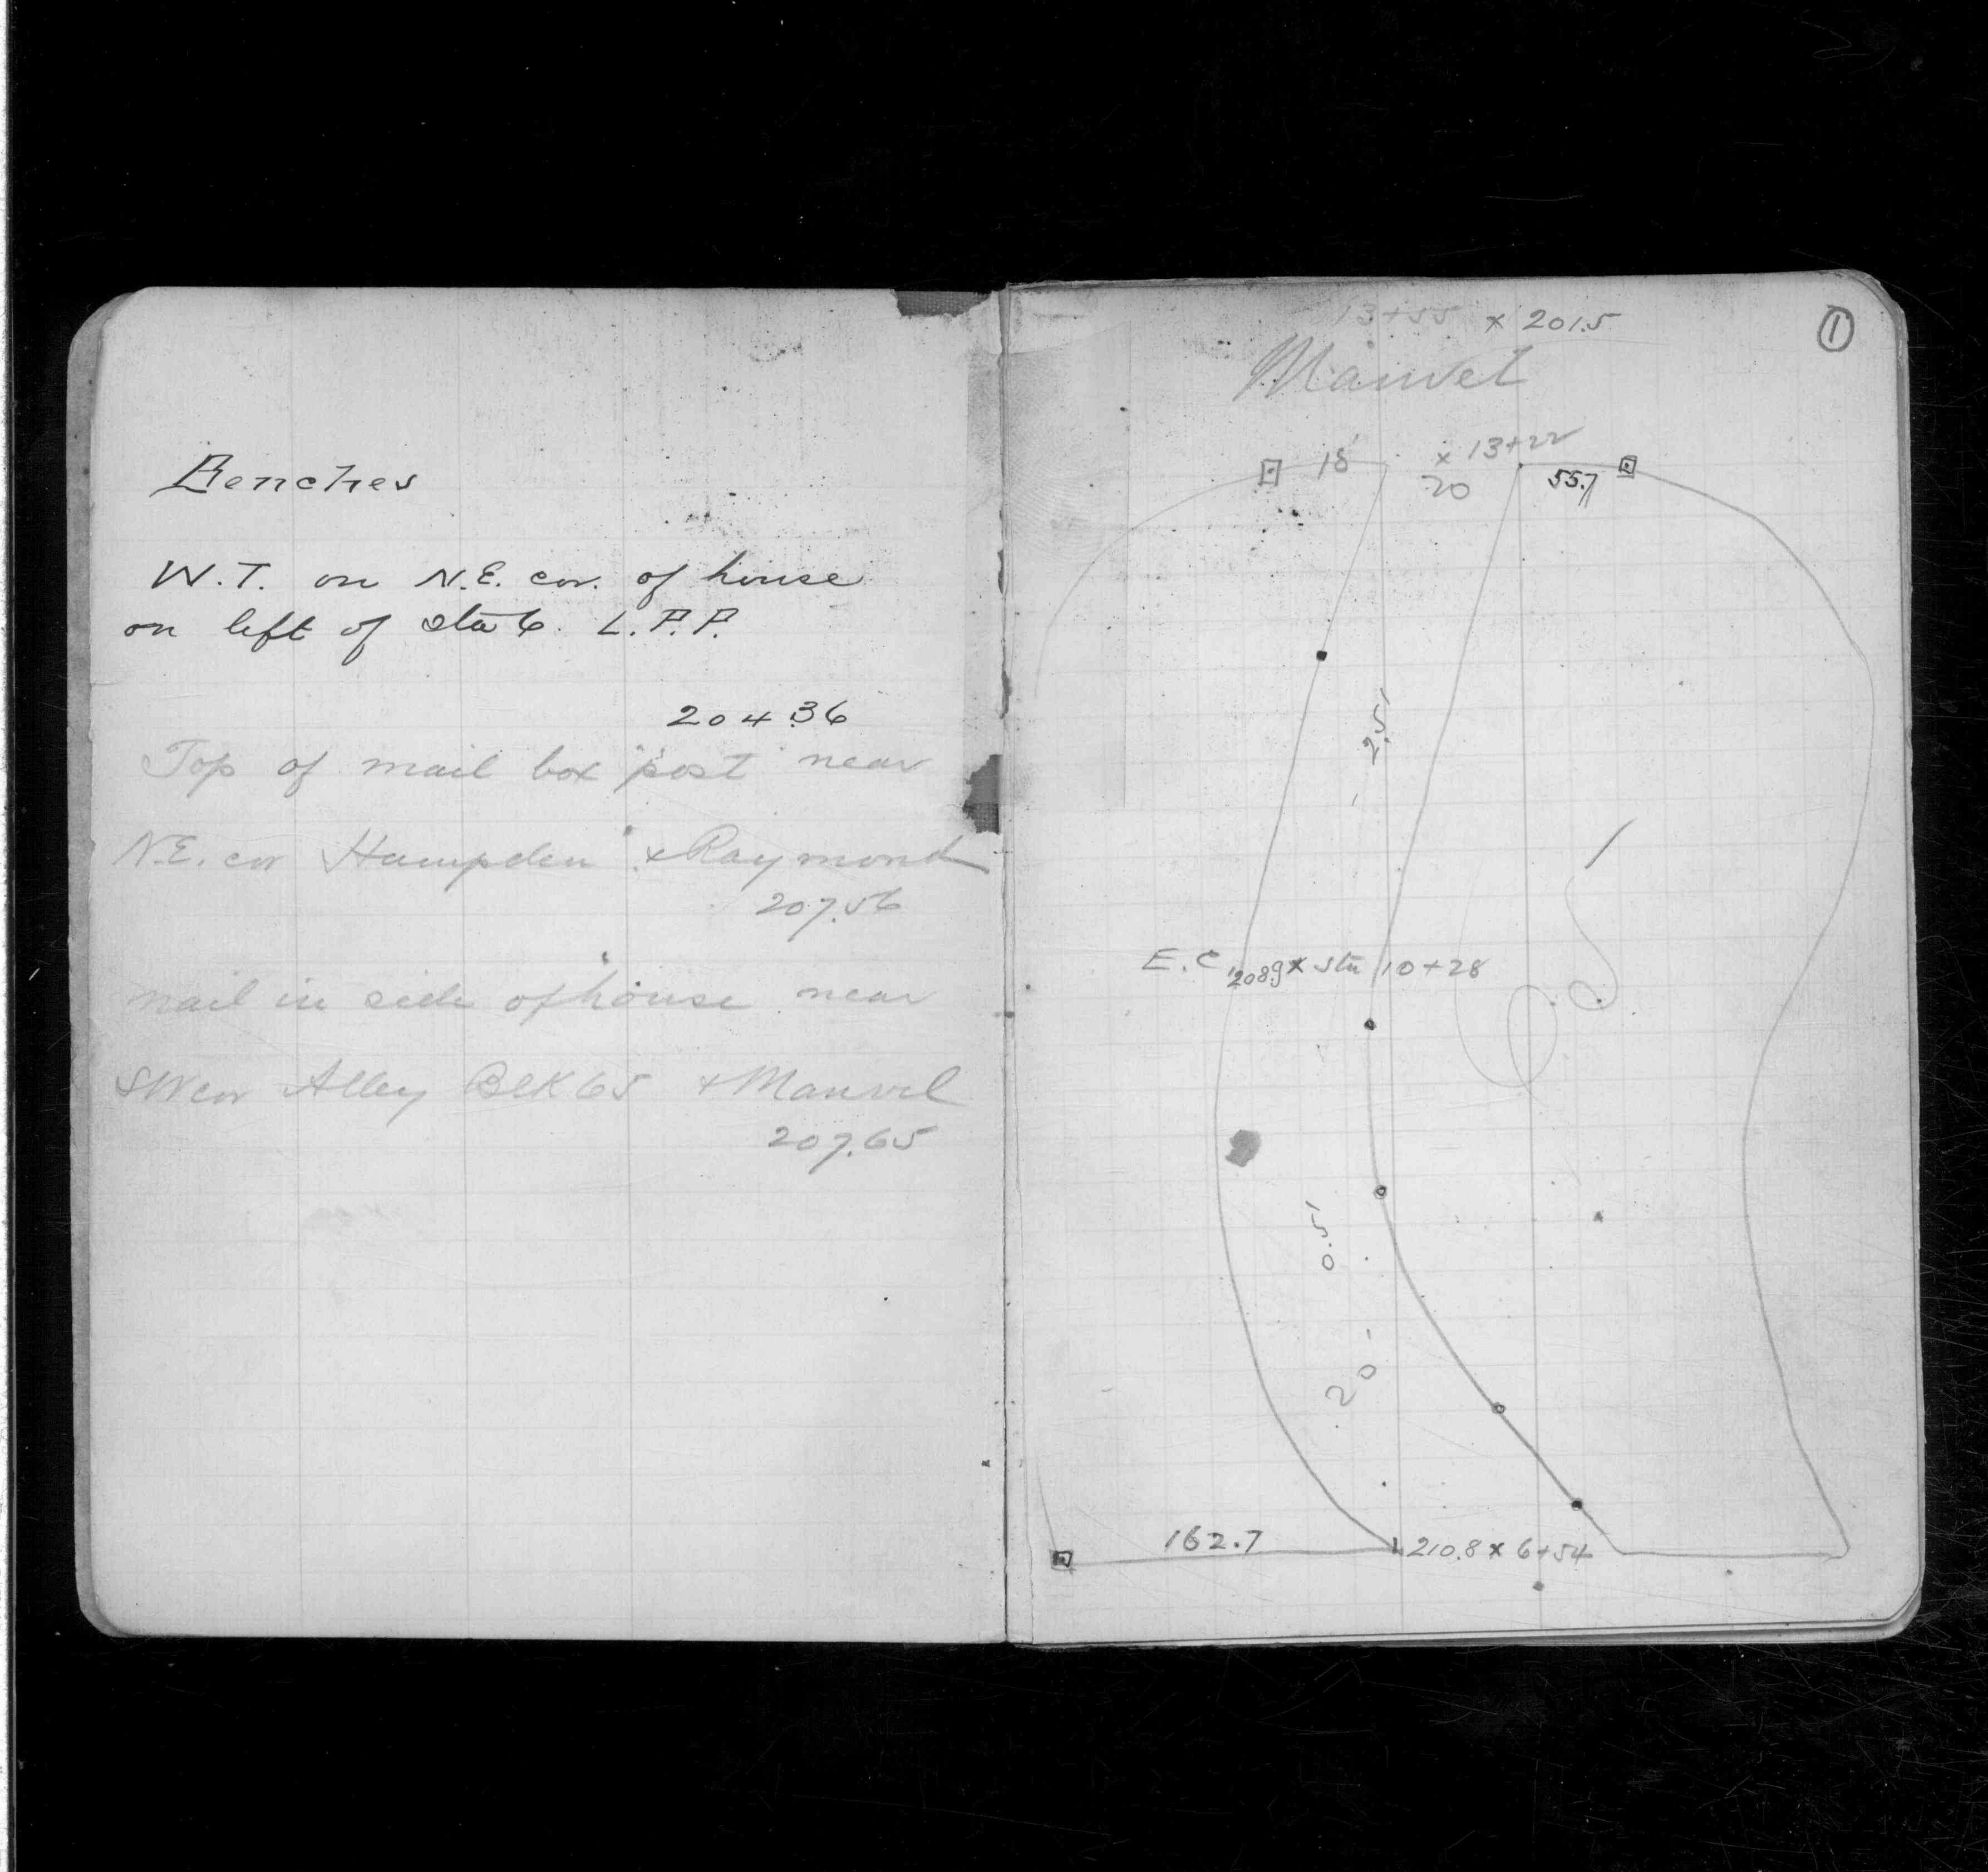 Benches
W.T. on N.E. cor. of house
on left of sta 6. L.P.P.
204.36
Top of mail box post near
N.E. cor Hampden & Raymond
207.56
nail in side of house near
SW cor Alley Blk 65 & Manvel
207.65
1
13+55 x 201.5
Manvel
18' x 13+22
20 55.7
- 2.5'
E.C. 208.9 x Sta 10+28
0.5'
20 -
162.7 210.8 x 6+54